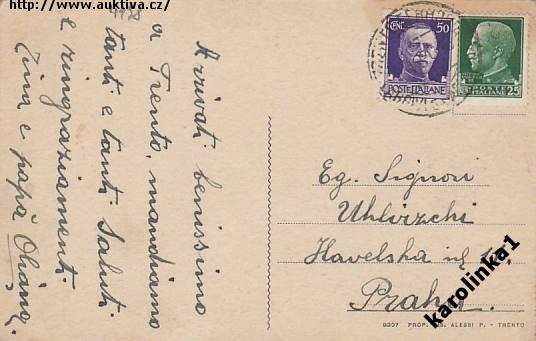 http://www.auktiva.cz/
1938
Arrivati benissimo
a Trento, mandiamo
tanti e tanti saluti
e ringraziamenti
Zina e papà
CENT. 50
POSTE ITALIANE
POSTE ITALIANE 25
Eg. Signori
Uhlvizchi
Havelska ul
Praha
karolinka1
9207 PROP. ALESSI P. - TRENTO